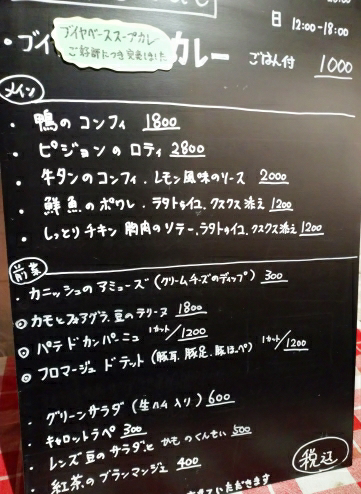 日 12:00-18:00
・ブイ カレー ごはん付 1000
ブイヤベーススープカレー
ご好評につき完売しました
メイン
・鴨の コンフィ 1800
・ピジョンの ロティ 2800
・牛タンの コンフィ.レモン風味のソース 2000
・鮮魚の ポワレ.ラタトゥイユ.クスクス添え 1200
・しっとりチキン 胸肉のソテー.ラタトゥイユ.クスクス添え 1200
前菜
・カニッシュのアミューズ(クリームチーズのディップ) 300
◎カモとフォアグラ.豆のテリーヌ 1800
◎パテ ド カンパーニュ 1カット/1200
◎フロマージュ ド テット(豚耳.豚足.豚ほっぺ) 1カット/1200
・グリーンサラダ(生ハム入り) 600
・キャロットラペ 300
・レンズ豆のサラダと かものくんせい 500
・紅茶のブランマンジェ 400
税込
いただきます